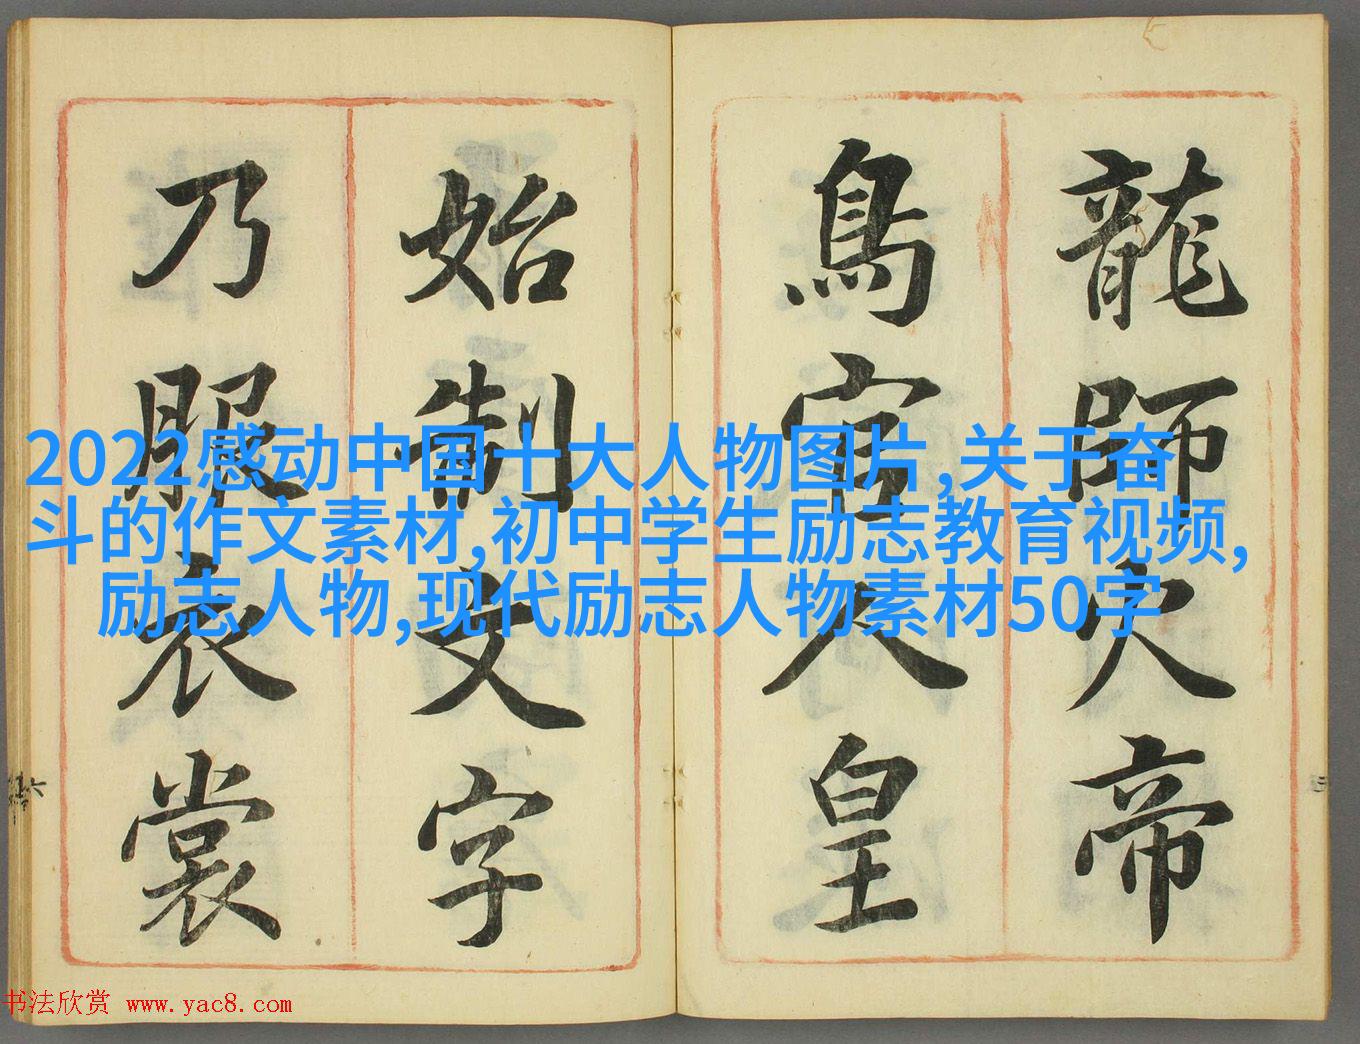 龍師火帝
鳥官人皇
始制文字
乃服衣裳
2022感动中国十大人物图片,关于奋
斗的作文素材,初中学生励志教育视频,
励志人物,现代励志人物素材50字
书法欣赏 www.yac8.com